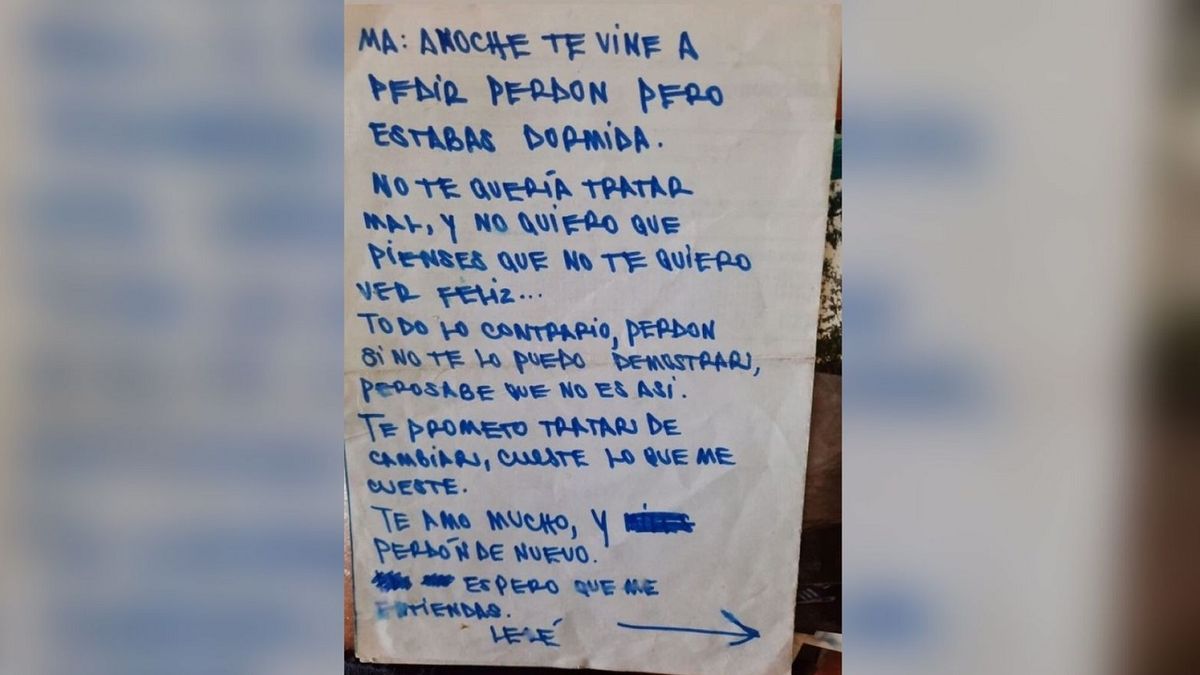 MA: ANOCHE TE VINE A
PEDIR PERDON PERO
ESTABAS DORMIDA.
NO TE QUERÍA TRATAR
MAL, Y NO QUIERO QUE
PIENSES QUE NO TE QUIERO
VER FELIZ...
TODO LO CONTRARIO, PERDON
SI NO TE LO PUEDO DEMOSTRAR,
PERO SABE QUE NO ES ASÍ.
TE PROMETO TRATAR DE
CAMBIAR, CUESTE LO QUE ME
CUESTE.
TE AMO MUCHO, Y
PERDÓN DE NUEVO.
ESPERO QUE ME
ENTIENDAS.
LELÉ